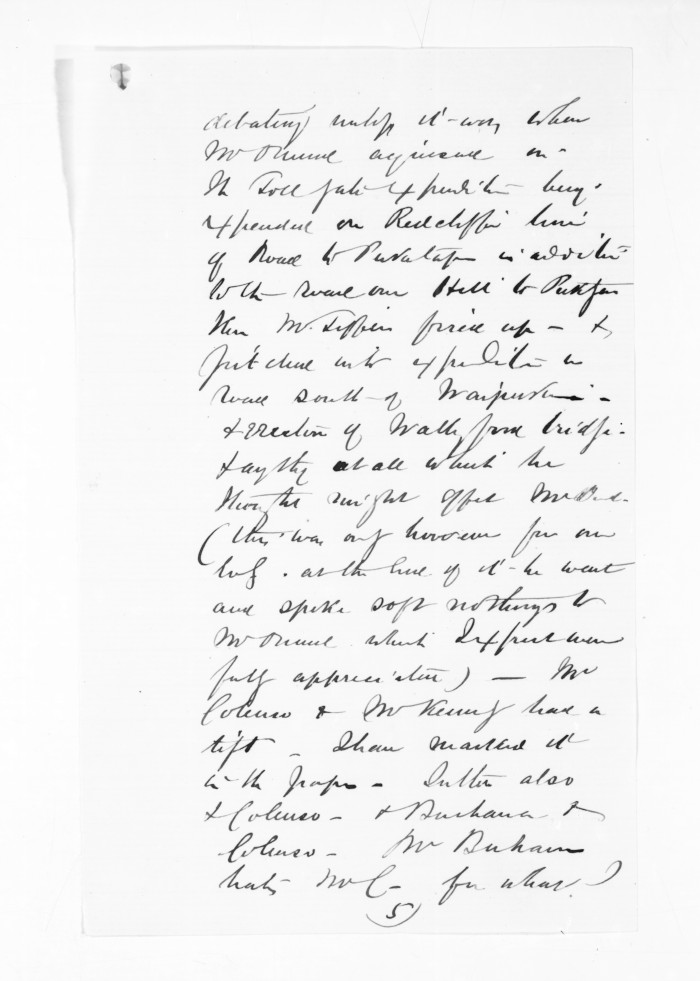 debating until it was when
Mr Ormond acquiesced in
the Toll gate expenditure being
expended on Redclyffe line
of Road to Puketapu in addition
to the road over Hill to Puketapu
Then Mr. Tiffen fired up - &
pitched into expenditure on
road south of Waipukurau -
& erection of Wallingford bridge -
& anything at all which he
thought might affect
(this was only however for one
half . at the end of it he went
and spoke soft nothings to
Mr Ormond which I expect were
fully appreciated) — Mr
Colenso & Mr Kennedy had a
tift - I have marked it
in the paper - Sutton also
& Colenso - & Buchanan &
Colenso - Mr Buchanan
hates Mr C - for what ?
(5)